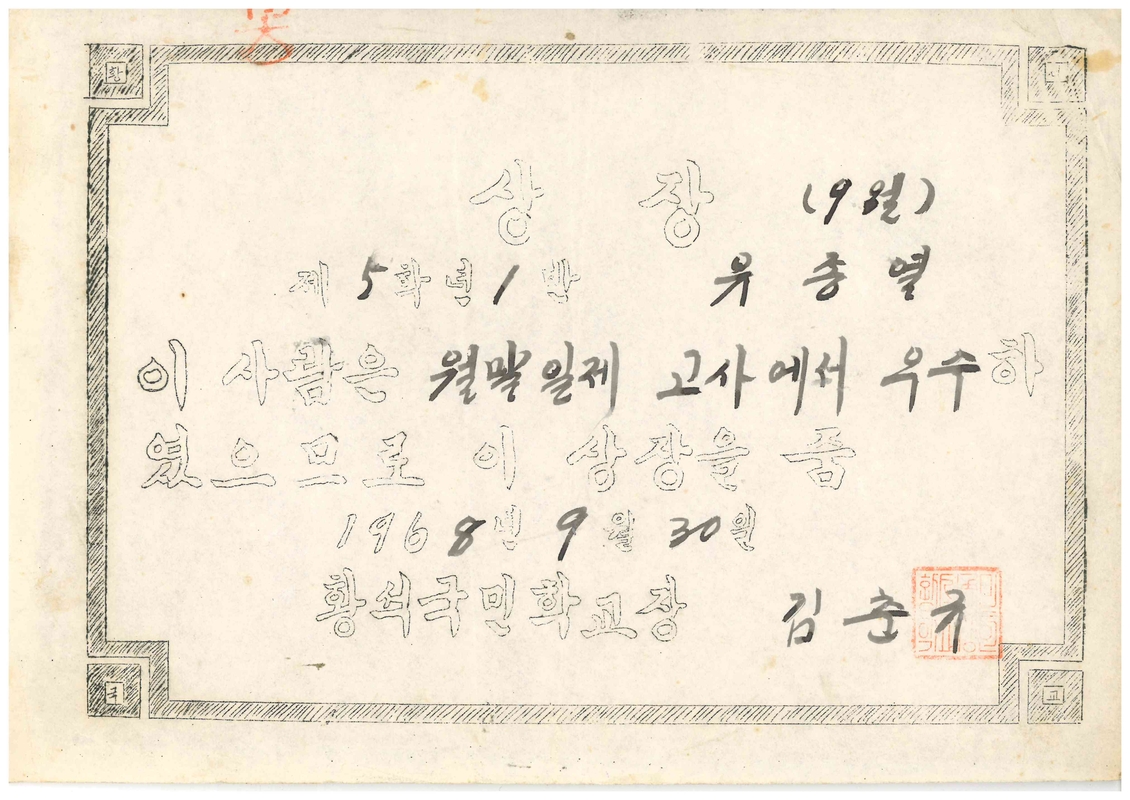 상 장 (9월)
제 5학년 1 반 유 종 열
이 사람은 월말일제 고사에서 우수하
였으므로 이 상장을 품
1968년 9월 30일
황석국민학교장 김 춘 규
황
국
교